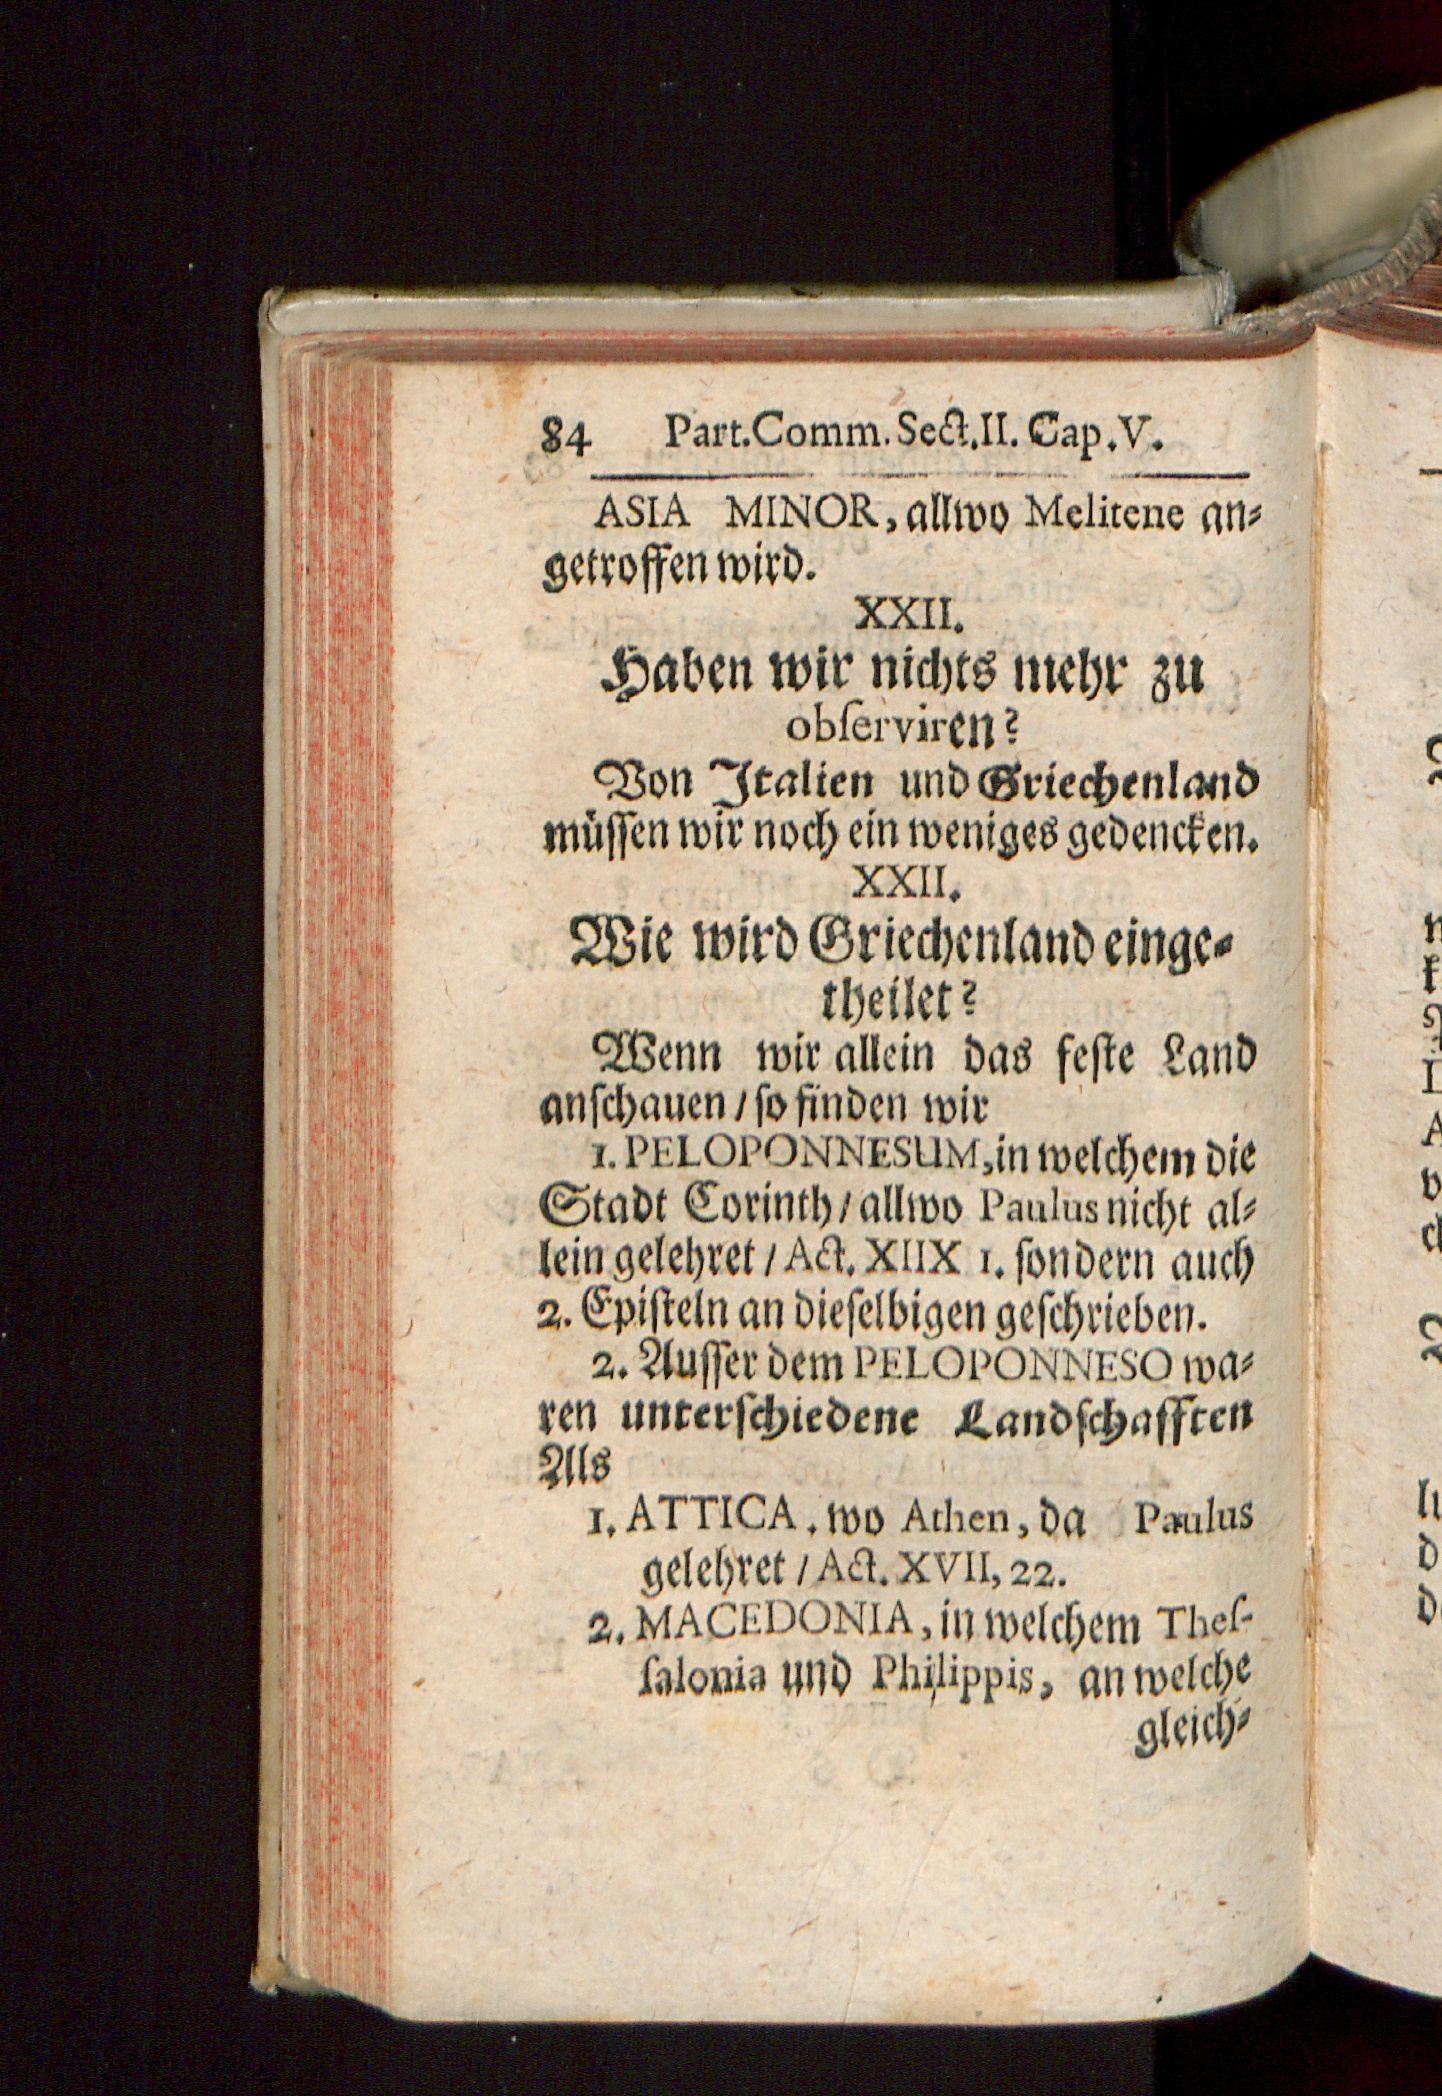 84 Part.Comm. Sect.II. Cap.V.
ASIA MINOR, allwo Melitene an⸗
getroffen wird.
XXII.
Haben wir nichts mehr zu
obſerviren?
Von Italien und Griechenland
müſſen wir noch ein weniges gedencken.
XXII.
Wie wird Griechenland einge⸗
theilet?
Wenn wir allein das feſte Land
anſchauen / ſo finden wir
1. PELOPONNESUM, in welchem die
Stadt Corinth / allwo Paulus nicht al⸗
lein gelehret / Act. XIIX 1. ſondern auch
2. Epiſteln an dieſelbigen geſchrieben.
2. Auſſer dem PELOPONNESO wa⸗
ren unterſchiedene Landſchafften
Als
1. ATTICA. wo Athen, da Paulus
gelehret / Act. XVII, 22.
2. MACEDONIA, in welchem Theſ-
ſalonia und Philippis, an welche
gleich⸗